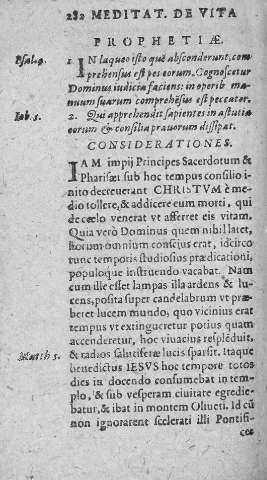 282 MEDITAT. DE VITA
PROPHETIÆ.
Psal. 9. 1 IN laqueo isto quẽ absconderunt, com-
prehensus est pes eorum. Cognoscetur
Dominus iudicia faciens: in operib. ma-
nuum suarum comprehẽsus est peccator.
Iob. 5. 2. Qui apprehendit sapientes in astutia
eorum & consilia prauorum dissipat.
CONSIDERATIONES.
IAM impij Principes Sacerdotum &
Pharisæi sub hoc tempus consilio i-
nito decreuerant CHRISTVM è me-
dio tollere, & addicere eum morti, qui
de cœlo venerat vt afferret eis vitam.
Quia verò Dominus quem nihil latet,
istorum omnium conscius erat, idcirco
tunc temporis studiosius prædicationi,
populoque instruendo vacabat. Nam
cum ille esset lampas illa ardens & lu-
cens, posita super candelabrum vt præ-
beret lucem mundo, quo vicinius erat
tempus vt extingueretur potius quam
accenderetur, hoc viuacius resplēduit,
Matth 5. & radios salutiferæ lucis sparsit. Itaque
benedictus IESVS hoc tempore totos
dies in docendo consumebat in tem-
plo, & sub vesperam ciuitate egredie-
batur, & ibat in montem Oliueti. Id cũ
non ignorarent scelerati illi Pontifi-
ces